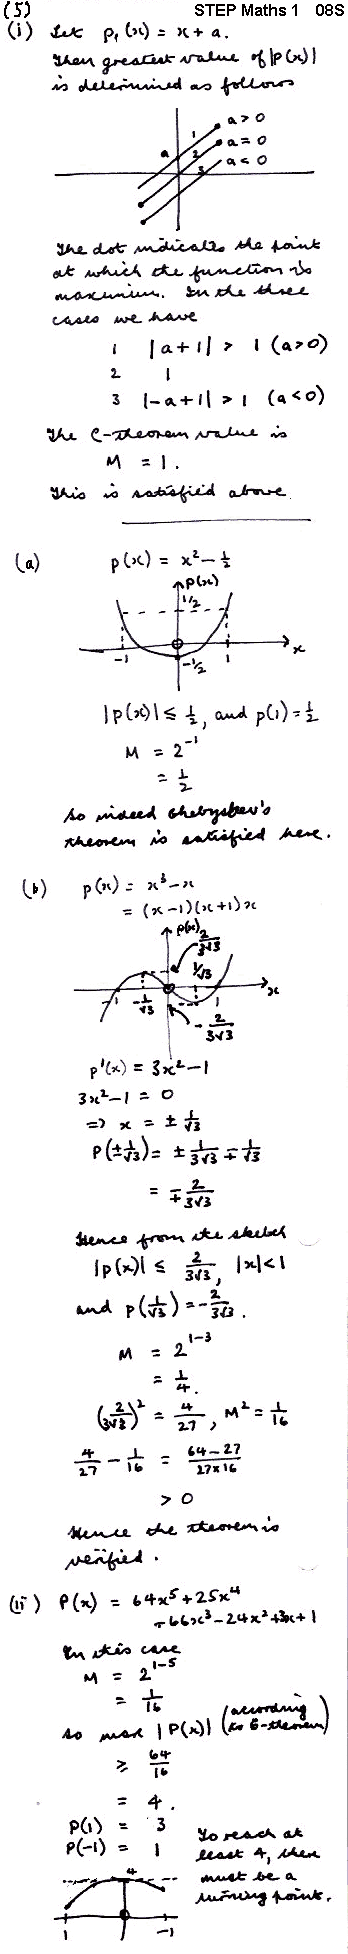 (5) STEP Maths 1 08S
(i) Let p₁(x) = x + a.
Then greatest value of |p(x)|
is determined as follows
a > 0
a = 0
a < 0
a 1 2 3
The dot indicates the point
at which the function is
maximum. In the three
cases we have
1 |a+1| > 1 (a>0)
2 1
3 |-a+1| > 1 (a<0)
The C-theorem value is
M = 1.
This is satisfied above.
(a) p(x) = x² - ½
p(x)
1/2
-1 1 x
-1/2
|p(x)| ≤ ½, and p(1) = ½
M = 2⁻¹
= ½
So indeed Chebyshev's
theorem is satisfied here.
(b) p(x) = x³ - x
= (x-1)(x+1)x
p(x) 2/3√3
-1 -1/√3 1/√3 1 x
-2/3√3
p'(x) = 3x² - 1
3x² - 1 = 0
=> x = ± 1/√3
p(± 1/√3) = ± 1/3√3 ∓ 1/√3
= ∓ 2/3√3
Hence from the sketch
|p(x)| ≤ 2/3√3, |x|<1
and p(1/√3) = -2/3√3.
M = 2¹⁻³
= 1/4.
(2/3√3)² = 4/27, M² = 1/16
4/27 - 1/16 = (64-27)/(27×16)
> 0
Hence the theorem is
verified.
(ii) P(x) = 64x⁵ + 25x⁴
-66x³ - 24x² + 3x + 1
In this case
M = 2¹⁻⁵
= 1/16
so max |P(x)| (according to C-theorem)
≥ 64/16
= 4.
P(1) = 3
P(-1) = 1
To reach at
least 4, there
must be a
turning point.
4
1 -1